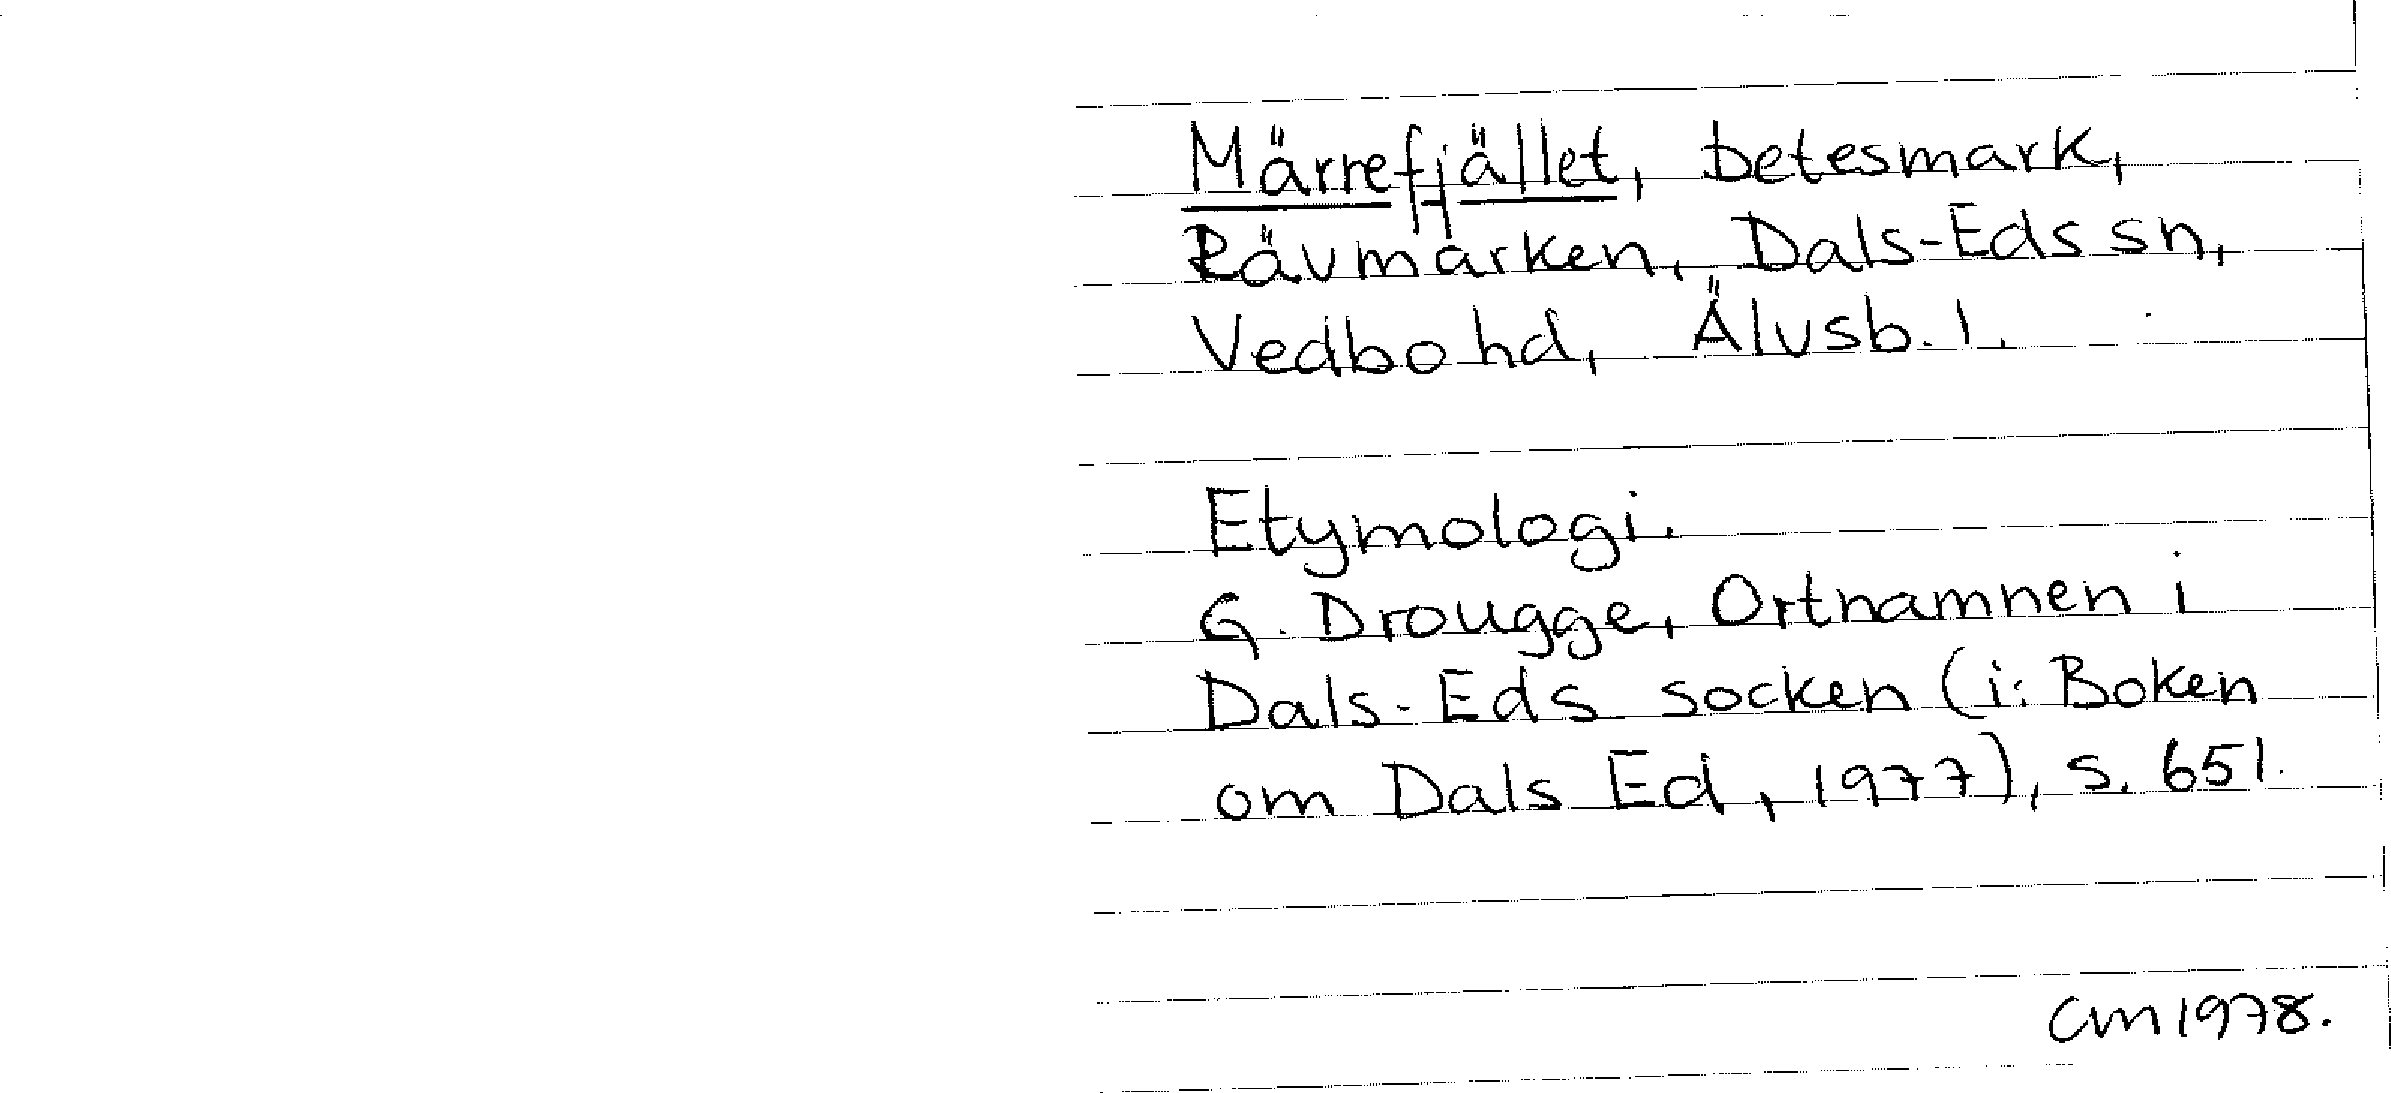 Märrefjället, betesmark,
Rävmarken, Dals-Eds sn,
Vedbo hd, Älvsb. l.
Etymologi.
G. Drougge, Ortnamnen i
Dals-Eds socken (i: Boken
om Dals Ed, 1977), s. 651.
CM 1978.